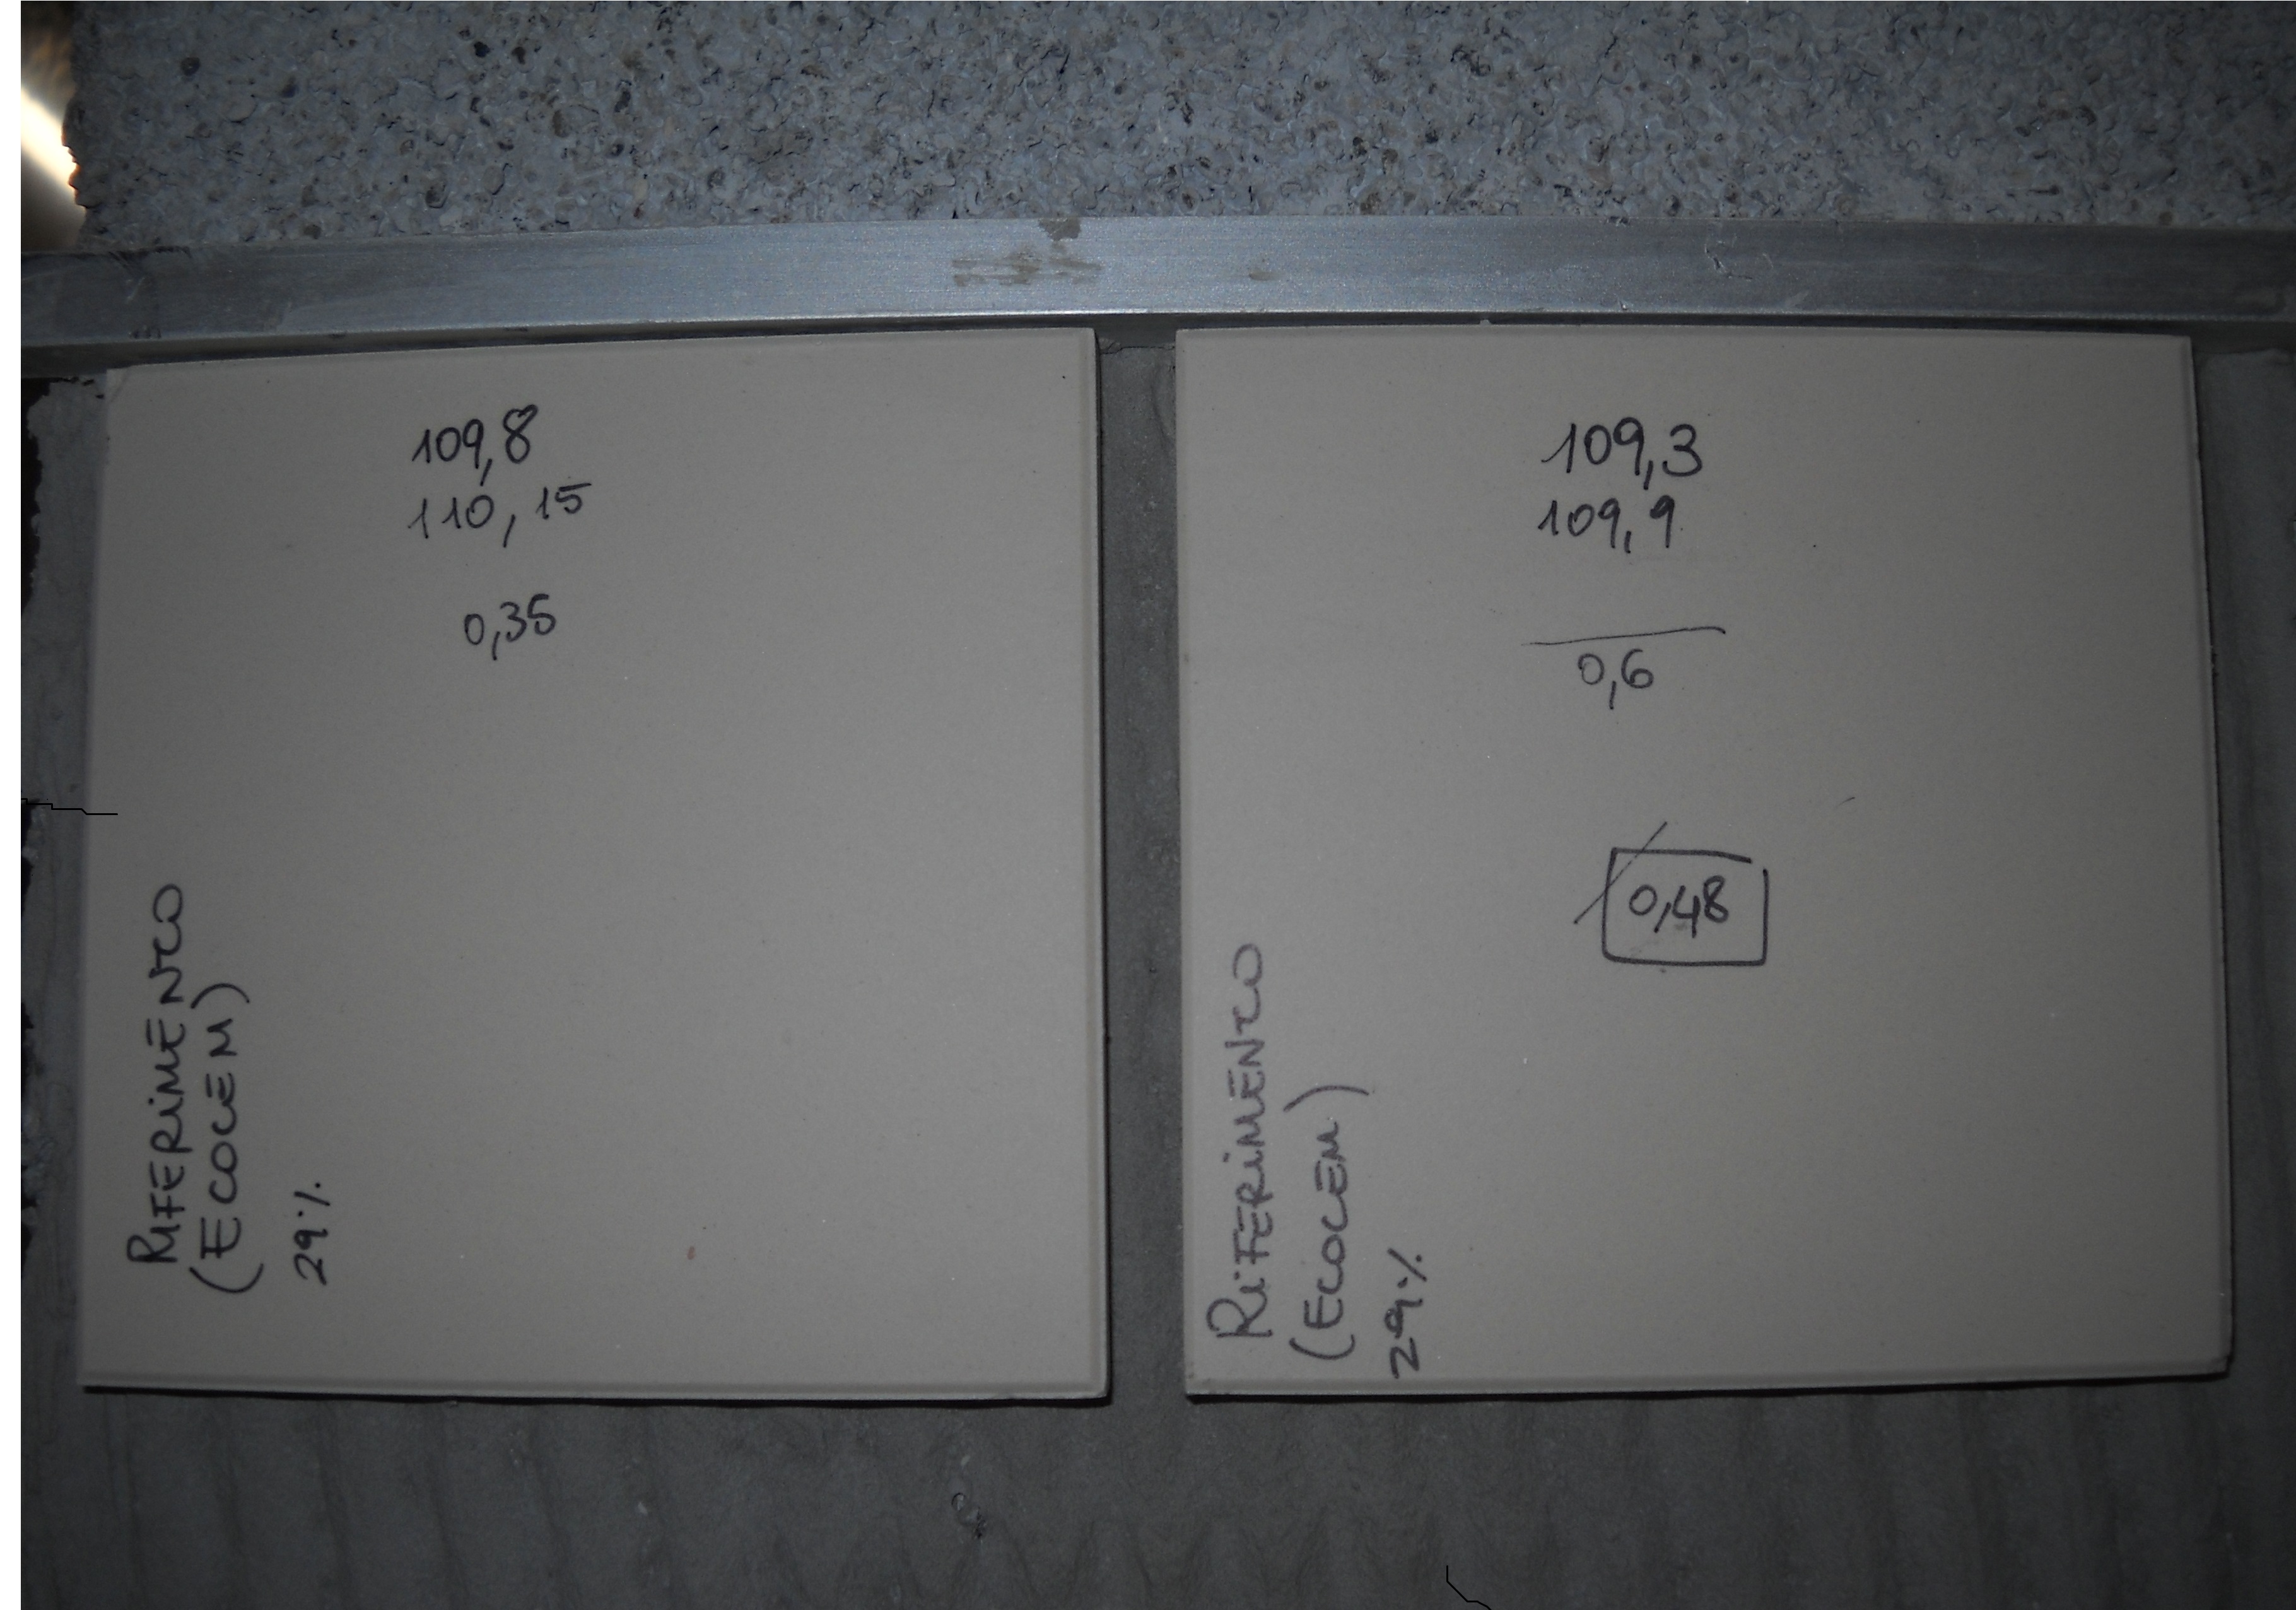 109,8
110,15
0,35
RIFERIMENTO
(ECOCEM)
29%
109,3
109,9
0,6
0,48
RIFERIMENTO
(ECOCEM)
29%